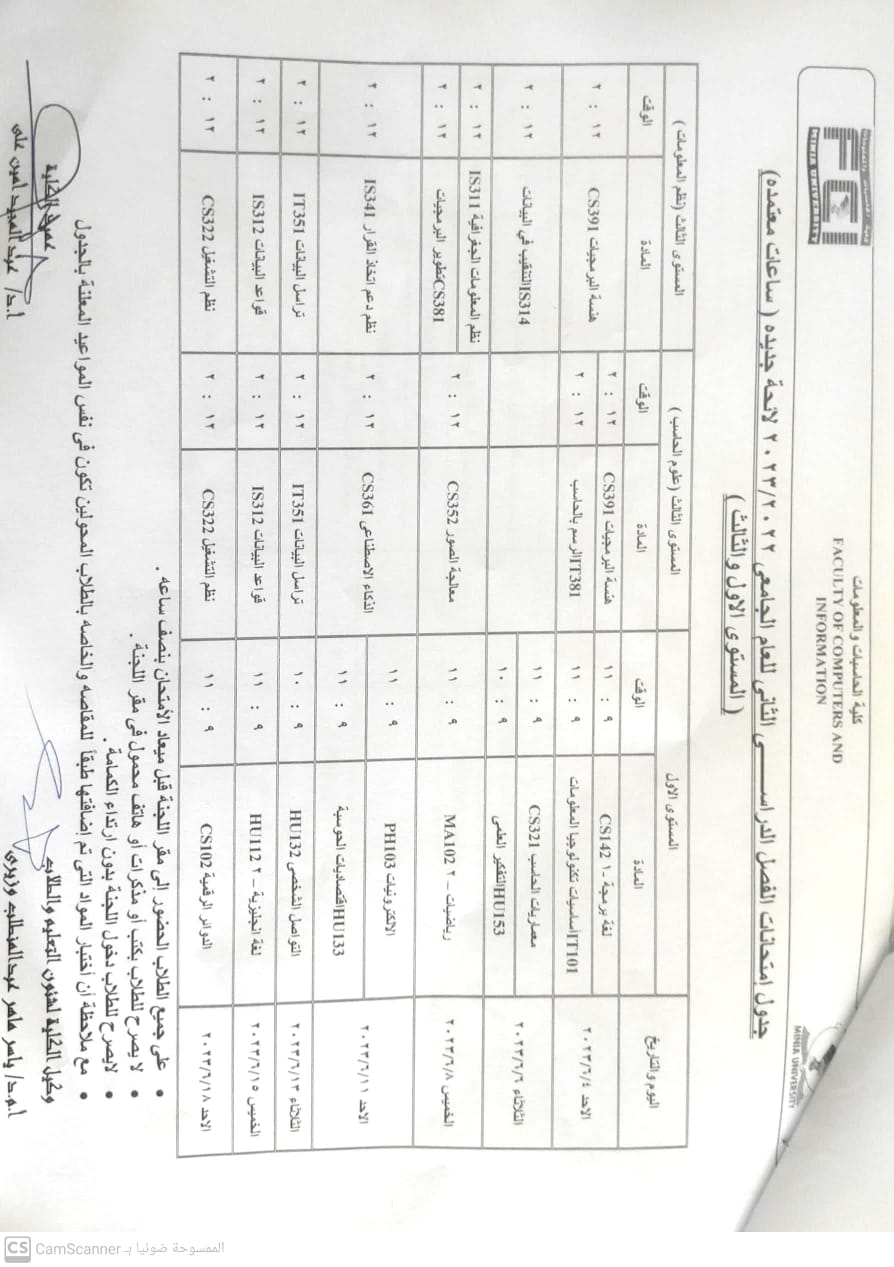 كلية الحاسبات والمعلومات
FACULTY OF COMPUTERS AND
INFORMATION
MINIA UNIVERSITY
MINIA UNIVERSITY
جدول إمتحانات الفصل الدراســـى الثانى للعام الجامعى ٢٠٢٣/٢٠٢٢ لائحة جديده ( ساعات معتمده)
( المستوى الاول والثالث )
اليوم والتاريخ | المستوى الاول | المستوى الثالث (علوم الحاسب ) | المستوى الثالث (نظم المعلومات )
المادة | الوقت | المادة | الوقت | المادة | الوقت
الاحد ٢٠٢٣/٦/٤ | لغة برمجة -١ CS142 | ٩ : ١١ | هندسة البرمجيات CS391 | ١٢ : ٢ | هندسة البرمجيات CS391 | ١٢ : ٢
IT101أساسيات تكنولوجيا المعلومات | ٩ : ١١ | IT381الرسم بالحاسب | ١٢ : ٢
الثلاثاء ٢٠٢٣/٦/٦ | معماريات الحاسب CS321 | ٩ : ١١ | IS314التنقيب في البيانات | ١٢ : ٢
HU153التفكير العلمى | ٩ : ١٠
الخميس ٢٠٢٣/٦/٨ | رياضيات – ٢ MA102 | ٩ : ١١ | معالجة الصور CS352 | ١٢ : ٢ | نظم المعلومات الجغرافية IS311 | ١٢ : ٢
CS381تطوير البرمجيات | ١٢ : ٢
الاحد ٢٠٢٣/٦/١١ | الالكترونيات PH103 | ٩ : ١١ | الذكاء الاصطناعى CS361 | ١٢ : ٢ | نظم دعم اتخاذ القرار IS341 | ١٢ : ٢
HU133اقتصاديات الحوسبة | ٩ : ١١
الثلاثاء ٢٠٢٣/٦/١٣ | التواصل الشخصى HU132 | ٩ : ١٠ | تراسل البيانات IT351 | ١٢ : ٢ | تراسل البيانات IT351 | ١٢ : ٢
الخميس ٢٠٢٣/٦/١٥ | لغة انجليزية – ٢ HU112 | ٩ : ١١ | قواعد البيانات IS312 | ١٢ : ٢ | قواعد البيانات IS312 | ١٢ : ٢
الاحد ٢٠٢٣/٦/١٨ | الدوائر الرقمية CS102 | ٩ : ١١ | نظم التشغيل CS322 | ١٢ : ٢ | نظم التشغيل CS322 | ١٢ : ٢
• على جميع الطلاب الحضور إلى مقر اللجنة قبل ميعاد الأمتحان بنصف ساعه .
• لا يصرح للطلاب بكتب أو مذكرات أو هاتف محمول فى مقر اللجنة .
• لايصرح للطلاب دخول اللجنة بدون ارتداء الكمامة .
• مع ملاحظة أن أختبار المواد التى تم إضافتها طبقاً للمقاصه والخاصه بالطلاب المحولين تكون فى نفس المواعيد المعلنة بالجدول
وكيل الكلية لشئون التعليم والطلاب
عميد الكلية
أ.م.د/ ياسر ماهر عبدالمطلب وزيرى
أ.د/ عبد المجيد أمين على
CS CamScanner الممسوحة ضوئيا بـ